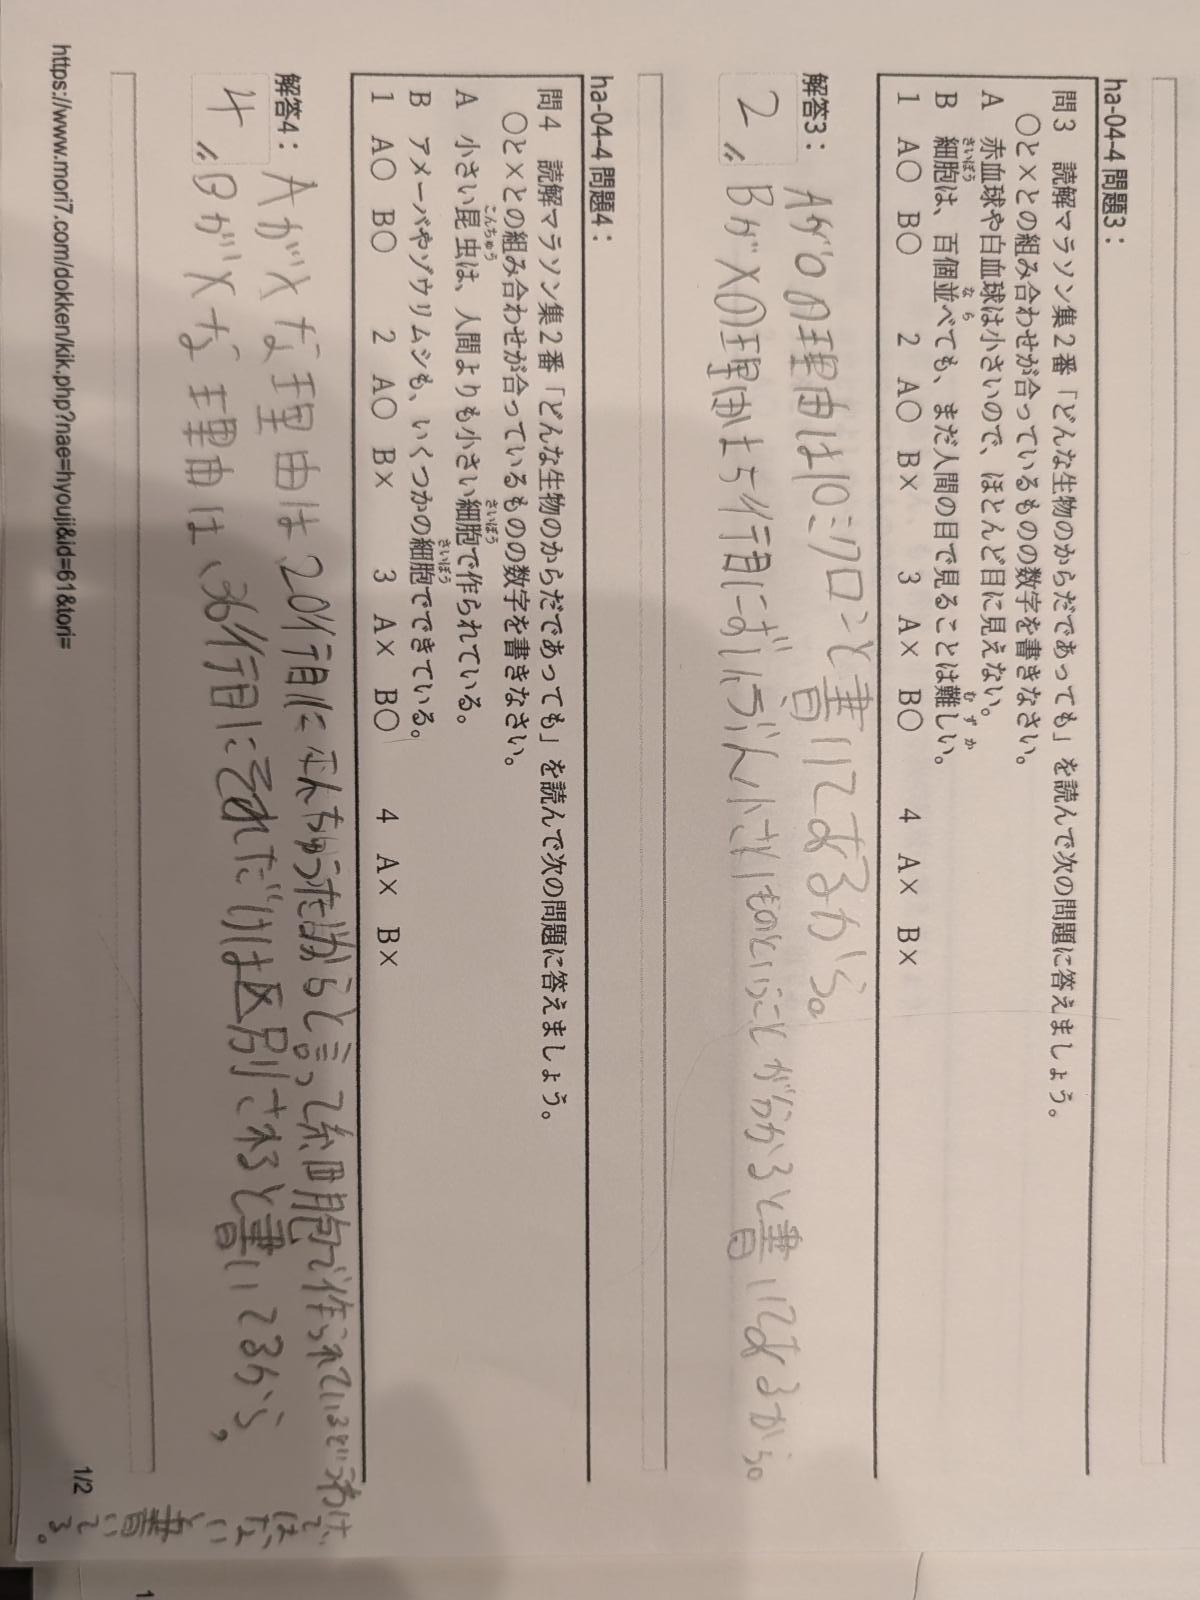 ha-04-4 問題3：
問3　読解マラソン集2番「どんな生物のからだであっても」を読んで次の問題に答えましょう。
〇と×との組み合わせが合っているものの数字を書きなさい。
A　赤血球や白血球は小さいので、ほとんど目に見えない。
B　細胞は、百個並べても、まだ人間の目で見ることは難しい。
1　A〇　B〇　　2　A〇　B×　　3　A×　B〇　　4　A×　B×
解答3：
2
Aが〇の理由は10ミクロンと書いてあるから。
〃Bが×の理由は5行目にずいぶん小さいものということが分かると書いてあるから。
ha-04-4 問題4：
問4　読解マラソン集2番「どんな生物のからだであっても」を読んで次の問題に答えましょう。
〇と×との組み合わせが合っているものの数字を書きなさい。
A　小さい昆虫は、人間よりも小さい細胞で作られている。
B　アメーバやゾウリムシも、いくつかの細胞でできている。
1　A〇　B〇　　2　A〇　B×　　3　A×　B〇　　4　A×　B×
解答4：
4
Aが×な理由は20行目にこんちゅうだからと言って細胞で作られているというわけではないと書いてる。
〃Bが×な理由は、36行目にそれだけは区別されると書いてるから、
https://www.mori7.com/dokken/kik.php?nae=hyouji&id=61&tori=
1/2
1